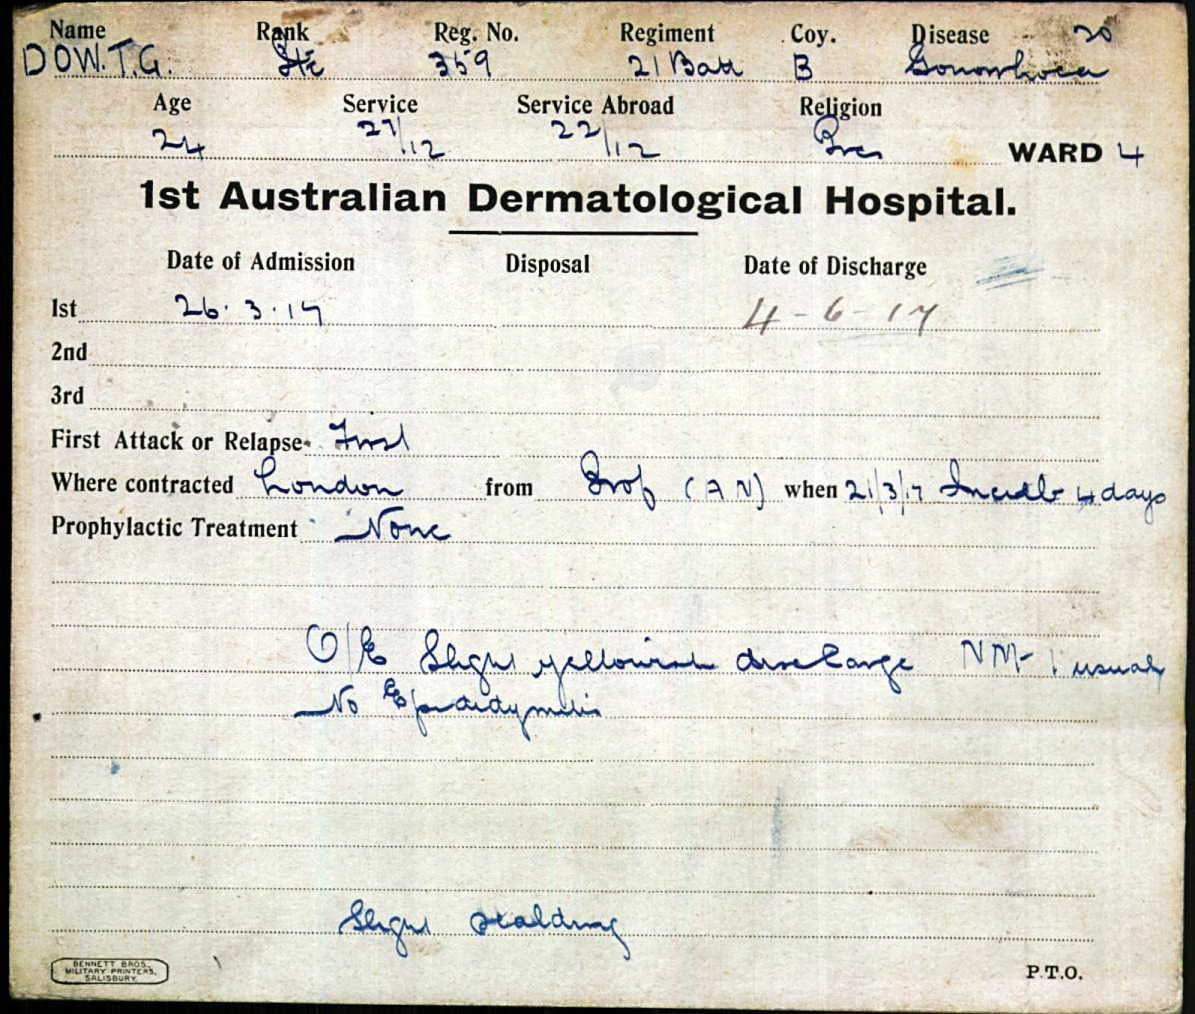 Name Rank Reg. No. Regiment Coy. Disease 20
DOW. T. G. Pte 359 21 Batt B Gonorrhoea
Age Service Service Abroad Religion
24 27/12 22/12 Pres WARD 4
1st Australian Dermatological Hospital.
Date of Admission Disposal Date of Discharge
1st 26.3.17 4-6-17
2nd
3rd
First Attack or Relapse First
Where contracted London from Prof (AN) when 21/3/17 Incub 4 days
Prophylactic Treatment None
O/E Slight yellowish discharge NM usual
No Epididymitis
Slight scalding
BENNETT BROS.
MILITARY PRINTERS,
SALISBURY.
P.T.O.